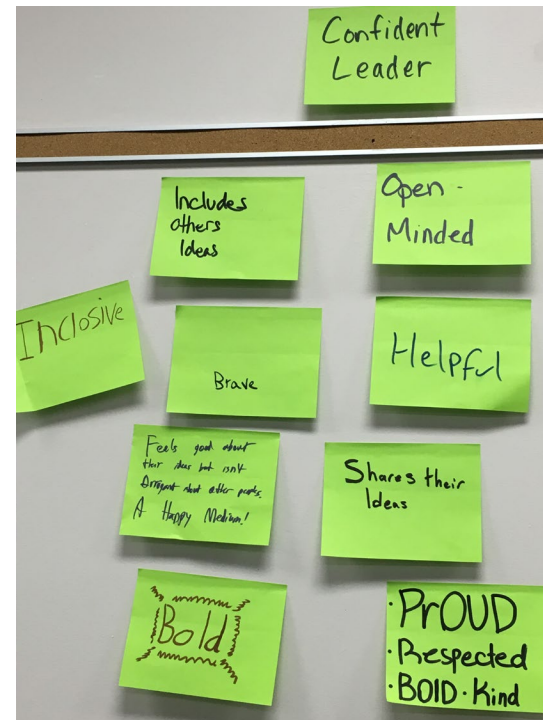 Confident
Leader
Includes
Others
Ideas
Open-
Minded
Inclosive
Brave
Helpful
Feels good about
their ideas but isn't
Arrogant about other peoples.
A Happy Medium!
Shares their
Ideas
Bold
·PrOUD
·Respected
·BOlD·Kind